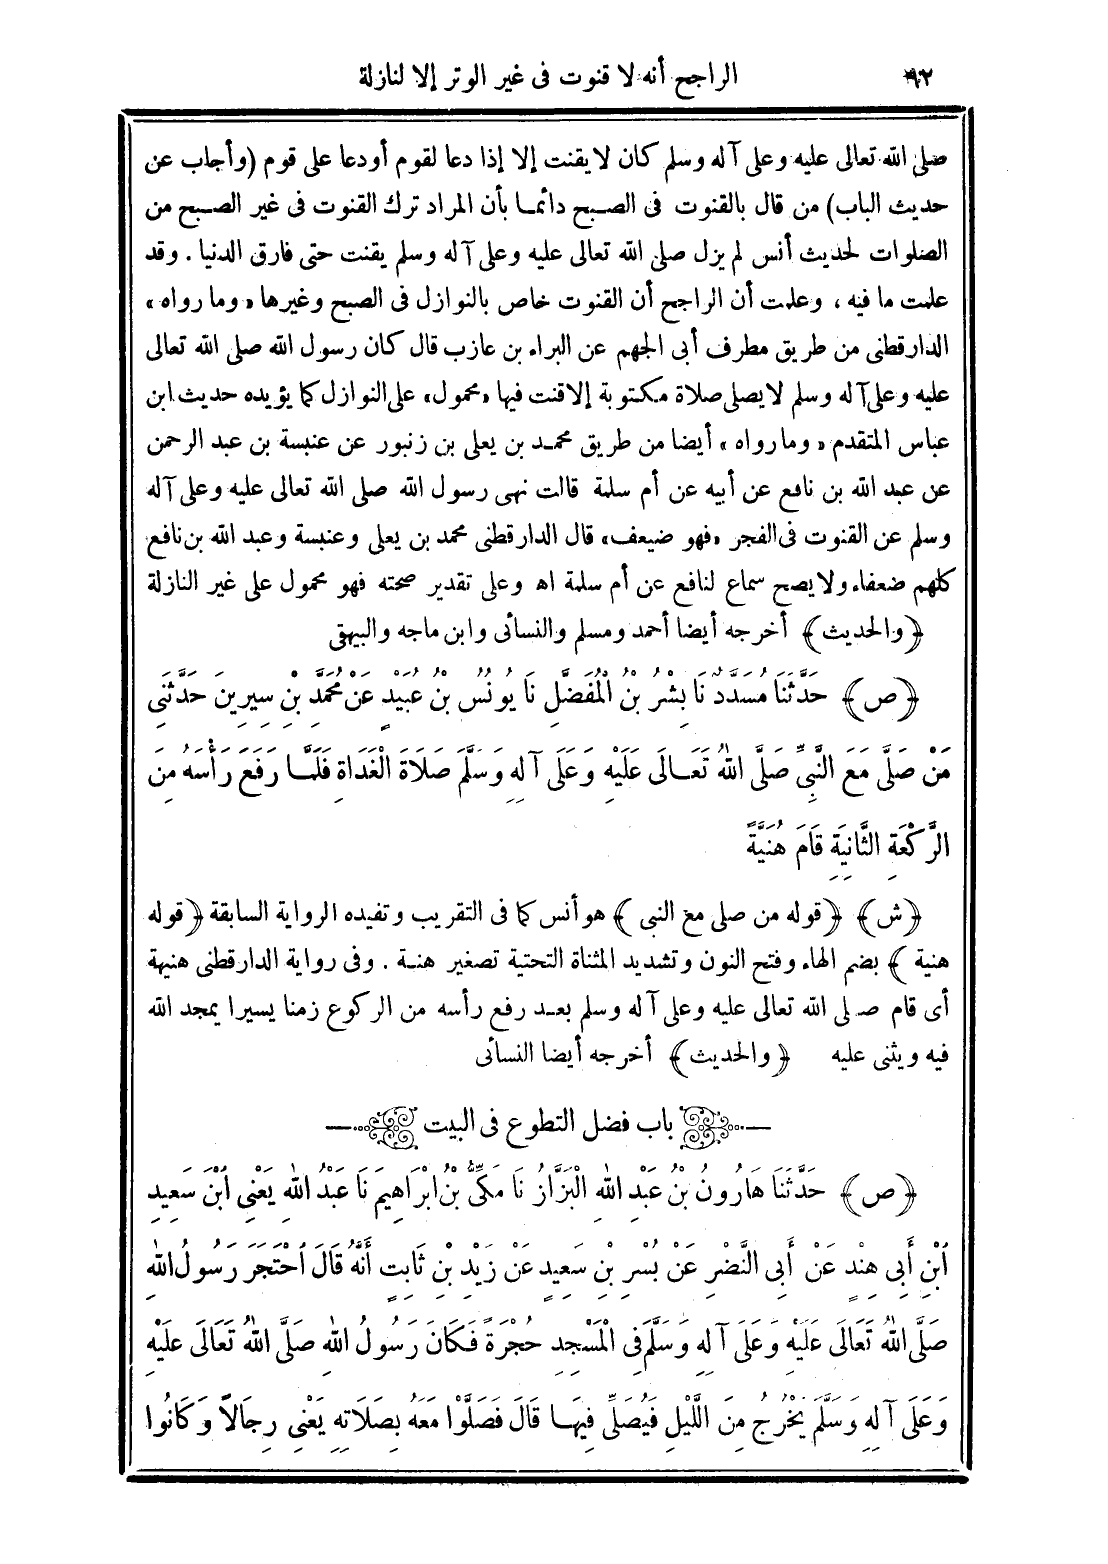 ٩٢ الراجح أنه لا قنوت فى غير الوتر إلا لنازلة
صلى الله تعالى عليه وعلى آله وسلم كان لا يقنت إلا إذا دعا لقوم أودعا على قوم (وأجاب عن
حديث الباب) من قال بالقنوت فى الصبح دائما بأن المراد ترك القنوت فى غير الصبح من
الصلوات لحديث أنس لم يزل صلى الله تعالى عليه وعلى آله وسلم يقنت حتى فارق الدنيا . وقد
علمت ما فيه ، وعلمت أن الراجح أن القنوت خاص بالنوازل فى الصبح وغيرها «وما رواه»
الدارقطنى من طريق مطرف أبى الجهم عن البراء بن عازب قال كان رسول الله صلى الله تعالى
عليه وعلى آله وسلم لا يصلى صلاة مكتوبة إلا قنت فيها «محمول» على النوازل كما يؤيده حديث ابن
عباس المتقدم «وما رواه» أيضا من طريق محمد بن يعلى بن زنبور عن عنبسة بن عبد الرحمن
عن عبد الله بن نافع عن أبيه عن أم سلمة قالت نهى رسول الله صلى الله تعالى عليه وعلى آله
وسلم عن القنوت فى الفجر «فهو ضيعف» قال الدارقطنى محمد بن يعلى وعنبسة وعبد الله بن نافع
كلهم ضعفاء ولا يصح سماع لنافع عن أم سلمة اه وعلى تقدير صحته فهو محمول على غير النازلة
﴿والحديث﴾ أخرجه أيضا أحمد ومسلم والنسائى وابن ماجه والبيهقى
﴿ص﴾ حَدَّثَنَا مُسَدَّدٌ نَا بِشْرُ بْنُ الْمُفَضَّلِ نَا يُونُسُ بْنُ عُبَيْدٍ عَنْ مُحَمَّدِ بْنِ سِيرِينَ حَدَّثَنِى
مَنْ صَلَّى مَعَ النَّبِىِّ صَلَّى اللهُ تَعَالَى عَلَيْهِ وَعَلَى آلِهِ وَسَلَّمَ صَلَاةَ الْغَدَاةِ فَلَمَّا رَفَعَ رَأْسَهُ مِنَ
الرَّكْعَةِ الثَّانِيَةِ قَامَ هُنَيَّةً
﴿ش﴾ ﴿قوله من صلى مع النبى﴾ هو أنس كما فى التقريب وتفيده الرواية السابقة ﴿قوله
هنية﴾ بضم الهاء وفتح النون وتشديد المثناة التحتية تصغير هنة . وفى رواية الدارقطنى هنيهة
أى قام صلى الله تعالى عليه وعلى آله وسلم بعد رفع رأسه من الركوع زمنا يسيرا يمجد الله
فيه ويثنى عليه ﴿والحديث﴾ أخرجه أيضا النسائى
باب فضل التطوع فى البيت
﴿ص﴾ حَدَّثَنَا هَارُونُ بْنُ عَبْدِ اللهِ الْبَزَّازُ نَا مَكِّىُّ بْنُ ابْرَاهِيمَ نَا عَبْدُ اللهِ يَعْنِى ابْنَ سَعِيدِ
ابْنِ أَبِى هِنْدٍ عَنْ أَبِى النَّضْرِ عَنْ بُسْرِ بْنِ سَعِيدٍ عَنْ زَيْدِ بْنِ ثَابِتٍ أَنَّهُ قَالَ احْتَجَرَ رَسُولُ اللهِ
صَلَّى اللهُ تَعَالَى عَلَيْهِ وَعَلَى آلِهِ وَسَلَّمَ فِى الْمَسْجِدِ حُجْرَةً فَكَانَ رَسُولُ اللهِ صَلَّى اللهُ تَعَالَى عَلَيْهِ
وَعَلَى آلِهِ وَسَلَّمَ يَخْرُجُ مِنَ اللَّيْلِ فَيُصَلِّى فِيهَا قَالَ فَصَلَّوْا مَعَهُ بِصَلَاتِهِ يَعْنِى رِجَالًا وَكَانُوا